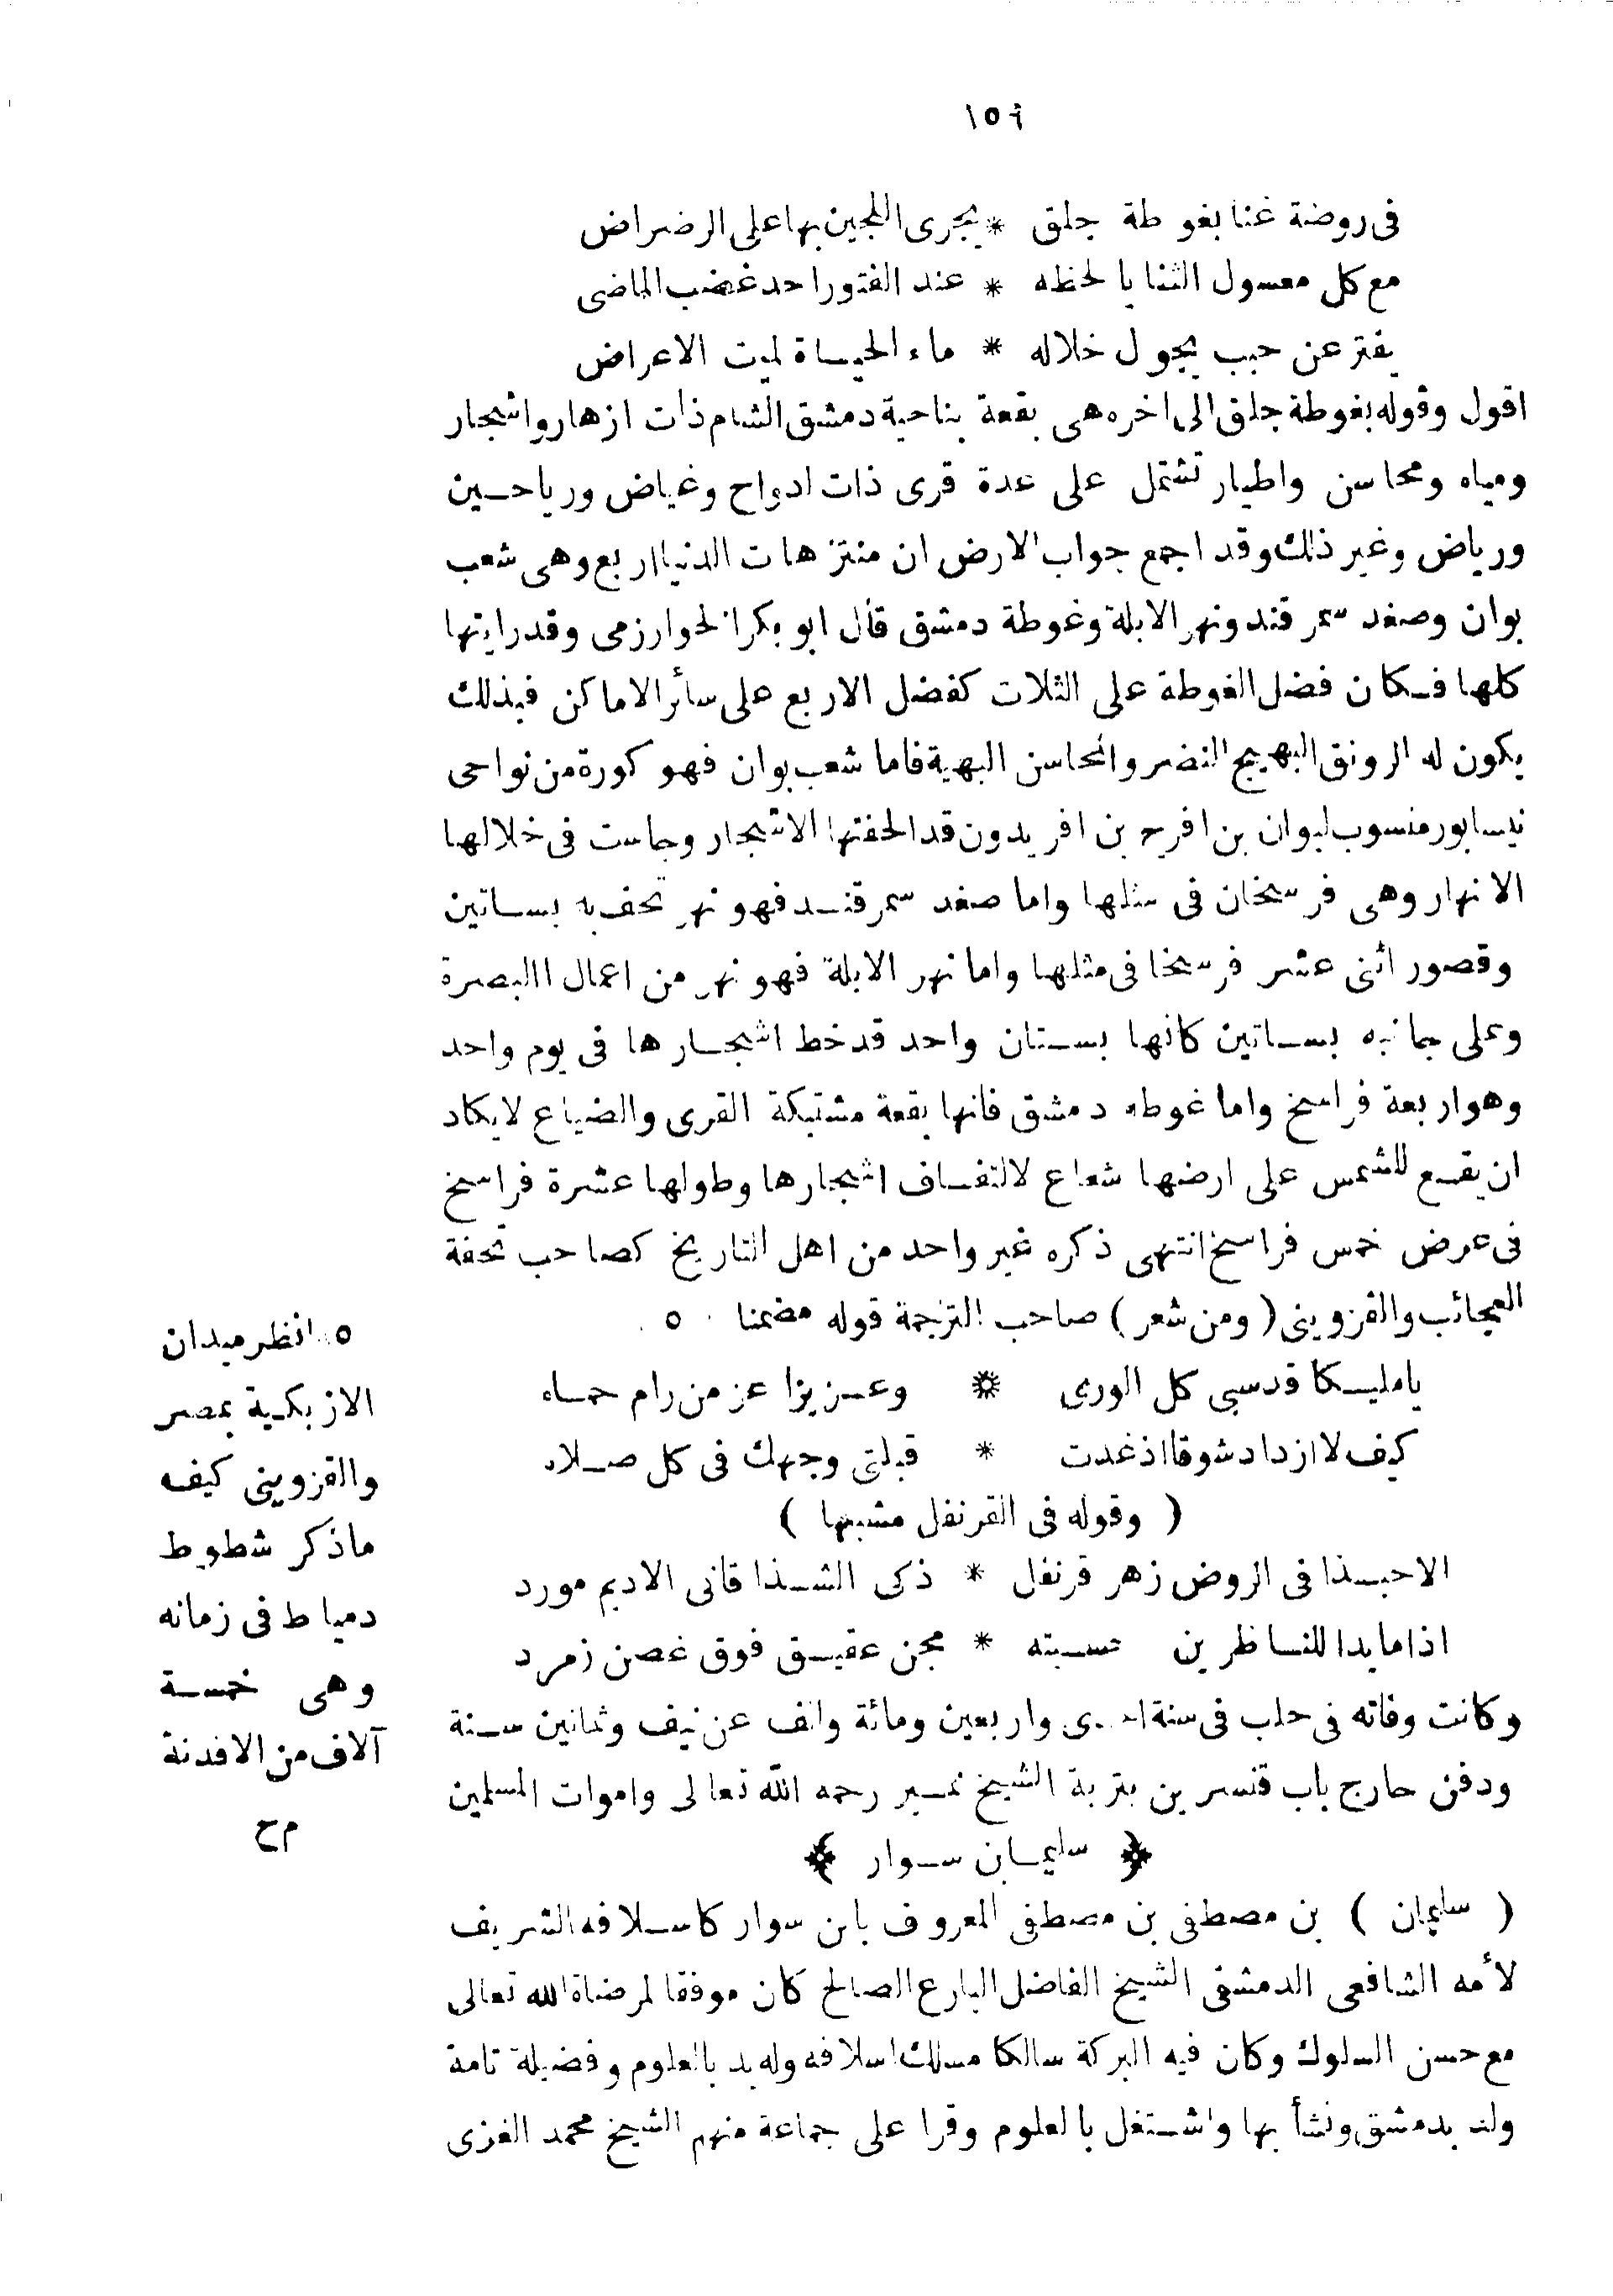 ١٥٦
فى روضة غنا بغوطة جلق * يجرى اللجين بها على الرضراض
مع كل معسول الثنايا لحظه * عند الفتور احد غضب الماضى
يفتر عن حبب يجول خلاله * ماء الحيساة لميت الاعراض
اقول وقوله بغوطة جلق الى اخره هى بقعة بناحية دمشق الشام ذات ازهار واشجار
ومياه ومحاسن واطيار تشتمل على عدة قرى ذات ادواح وغياض ورياحسين
ورياض وغير ذلك وقد اجمع جواب الارض ان منتزهات الدنيا اربع وهى شعب
بوان وصغد سمرقند ونهر الابلة وغوطة دمشق قال ابو بكر الخوارزمى وقد رايتها
كلها فكان فضل الغوطة على الثلات كفضل الاربع على سائر الاماكن فبذلك
يكون له الرونق البهيج النضر والمحاسن البهية فاما شعب بوان فهو كورة من نواحى
نيسابور منسوب لبوان بن افريد بن افريدون قد الحفتها الاشجار وجاست فى خلالها
الانهار وهى فرسخان فى مثلها واما صغد سمرقند فهو نهر تحف به بساتين
وقصور اثنى عشر فرسخا فى مثلها واما نهر الابلة فهو نهر من اعمال االبصرة
وعلى جانبه بساتين كانها بستان واحد قد خط اشجارها فى يوم واحد
وهو اربعة فراسخ واما غوطه دمشق فانها بقعة مشتبكة القرى والضياع لا يكاد
ان يقع للشمس على ارضها شعاع لالتفاف اشجارها وطولها عشرة فراسخ
فى عرض خمس فراسخ انتهى ذكره غير واحد من اهل التاريخ كصاحب تحفة
العجائب والقزوينى ( ومن شعر ) صاحب الترجمة قوله مضمنا ٥
يا مليكا قد سبى كل الورى * وعزيزا عز من رام حماه
كيف لا ازداد شوقا اذ غدت * قبلتى وجهك فى كل صلاه
( وقوله فى القرنفل مشبها )
الاحبذا فى الروض زهر قرنفل * ذكى الشذا قانى الاديم مورد
اذا ما بدا للناظرين حسبته * مجن عقيق فوق غصن زمرد
وكانت وفاته فى حلب فى سنة احدى واربعين ومائة والف عن نيف وثمانين سنة
ودفن خارج باب قنسرين بتربة الشيخ نمير رحمه الله تعالى واموات المسلمين
﴿ سليمان سوار ﴾
( سليمان ) بن مصطفى بن مصطفى المعروف بابن سوار كاسلافه الشريف
لأمه الشافعى الدمشقى الشيخ الفاضل البارع الصالح كان موفقا لمرضاة الله تعالى
مع حسن السلوك وكان فيه البركة سالكا مسلك اسلافه وله يد بالعلوم وفضيلة تامة
ولد بدمشق ونشأ بها واشتغل بالعلوم وقرا على جماعة منهم الشيخ محمد الغزى
٥ انظر ميدان
الازبكية بمصر
والقزوينى كيف
ماذكر شطوط
دمياط فى زمانه
وهى خمسة
آلاف من الافدنة
م ح